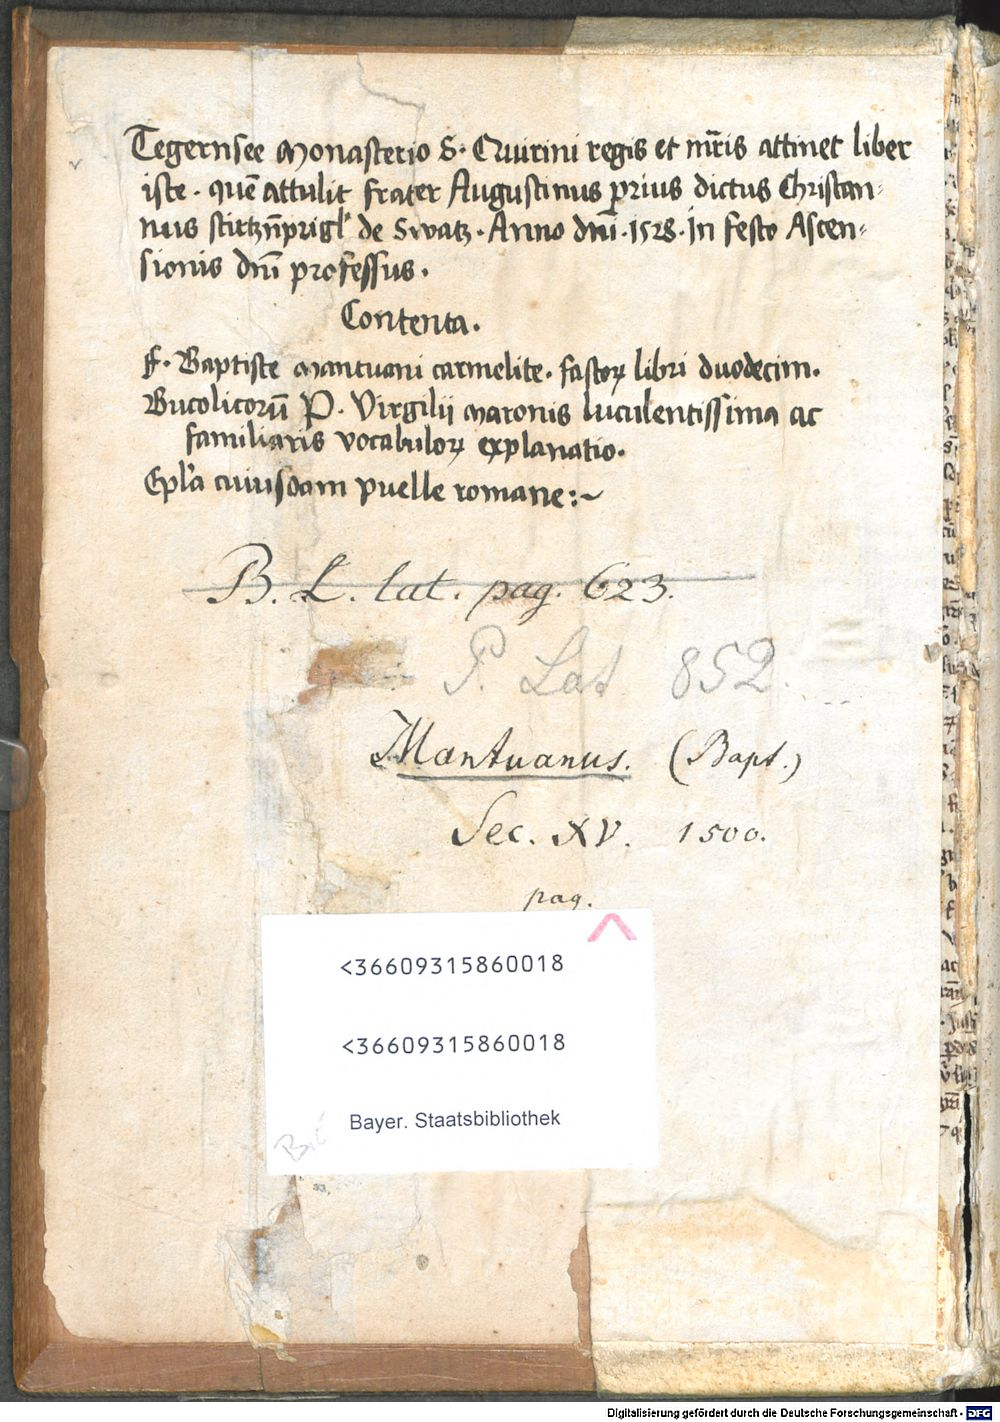 Tegernsee Monasterio S. Quirini regis et mr̄is attinet liber
iste. quē attulit frater Augustinus prius dictus Christan=
nus de Swatz. Anno dnī. 1528. In festo Ascen=
sionis dnī professus.
Contenta.
F. Baptiste Mantuani carmelite. fastoꝝ libri duodecim.
Bucolicorū P. Virgilij Maronis luculentissima ac
familiaris vocabuloꝝ explanatio.
Epl'a cuiusdam puelle romane:~
B. L. lat. pag. 623.
P. Lat 852.
Mantuanus. (Bapt.)
Sec. XV. 1500.
pag.
<36609315860018
<36609315860018
Bayer. Staatsbibliothek
Digitalisierung gefördert durch die Deutsche Forschungsgemeinschaft - DFG